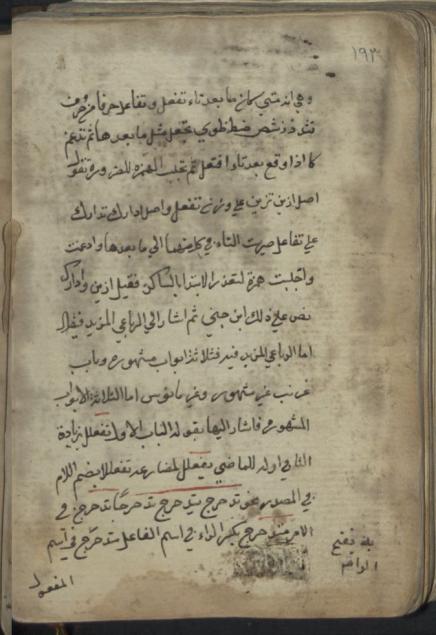 ١٩٣
وهي انه متي كان ما بعد تاء تفعل وتفاعل حرفا من حروف
تثد ذز شص ضطظوي تجعل مثل ما بعدها ثم تدغم
كما اذا وقع بعد تاء افتعل ثم تجلب الهمزة للضرورة فتقول
اصل ازين تزين علي وزن تفعل واصل ادارك تدارك
علي تفاعل صيرت التاء في كل منهما الي ما بعدها وادغمت
واجلبت همزة لتعذر الابتدا بالساكن فقيل ازين وادارك
نص علي ذلك ابن جني ثم اشار الي الرباعي المزيد فيه فقال
اما الرباعي المزيد فيه فثلاثة ابواب مشهورة وباب
غريب غير مشهور وغير مانوس اما الثلاثة الابواب
المشهورة فاشار اليها بقوله الباب الاول تفعلل بزيادة
التا في اوله للماضي يتفعلل لمضارعه تفعللا بضم اللام
في المصدر نحو تدحرج يتدحرج تدحرجا تدحرج في
الامر متدحرج بكسر الراء في اسم الفاعل متدحرج في اسم
به بفتح
الراء
المفعول